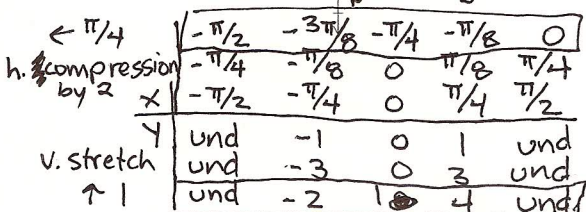 ← π/4 -π/2 -3π/8 -π/4 -π/8 0
h. compression by 2 -π/4 -π/8 0 π/8 π/4
X -π/2 -π/4 0 π/4 π/2
Y und -1 0 1 und
v. stretch und -3 0 3 und
↑ 1 und -2 1 4 und